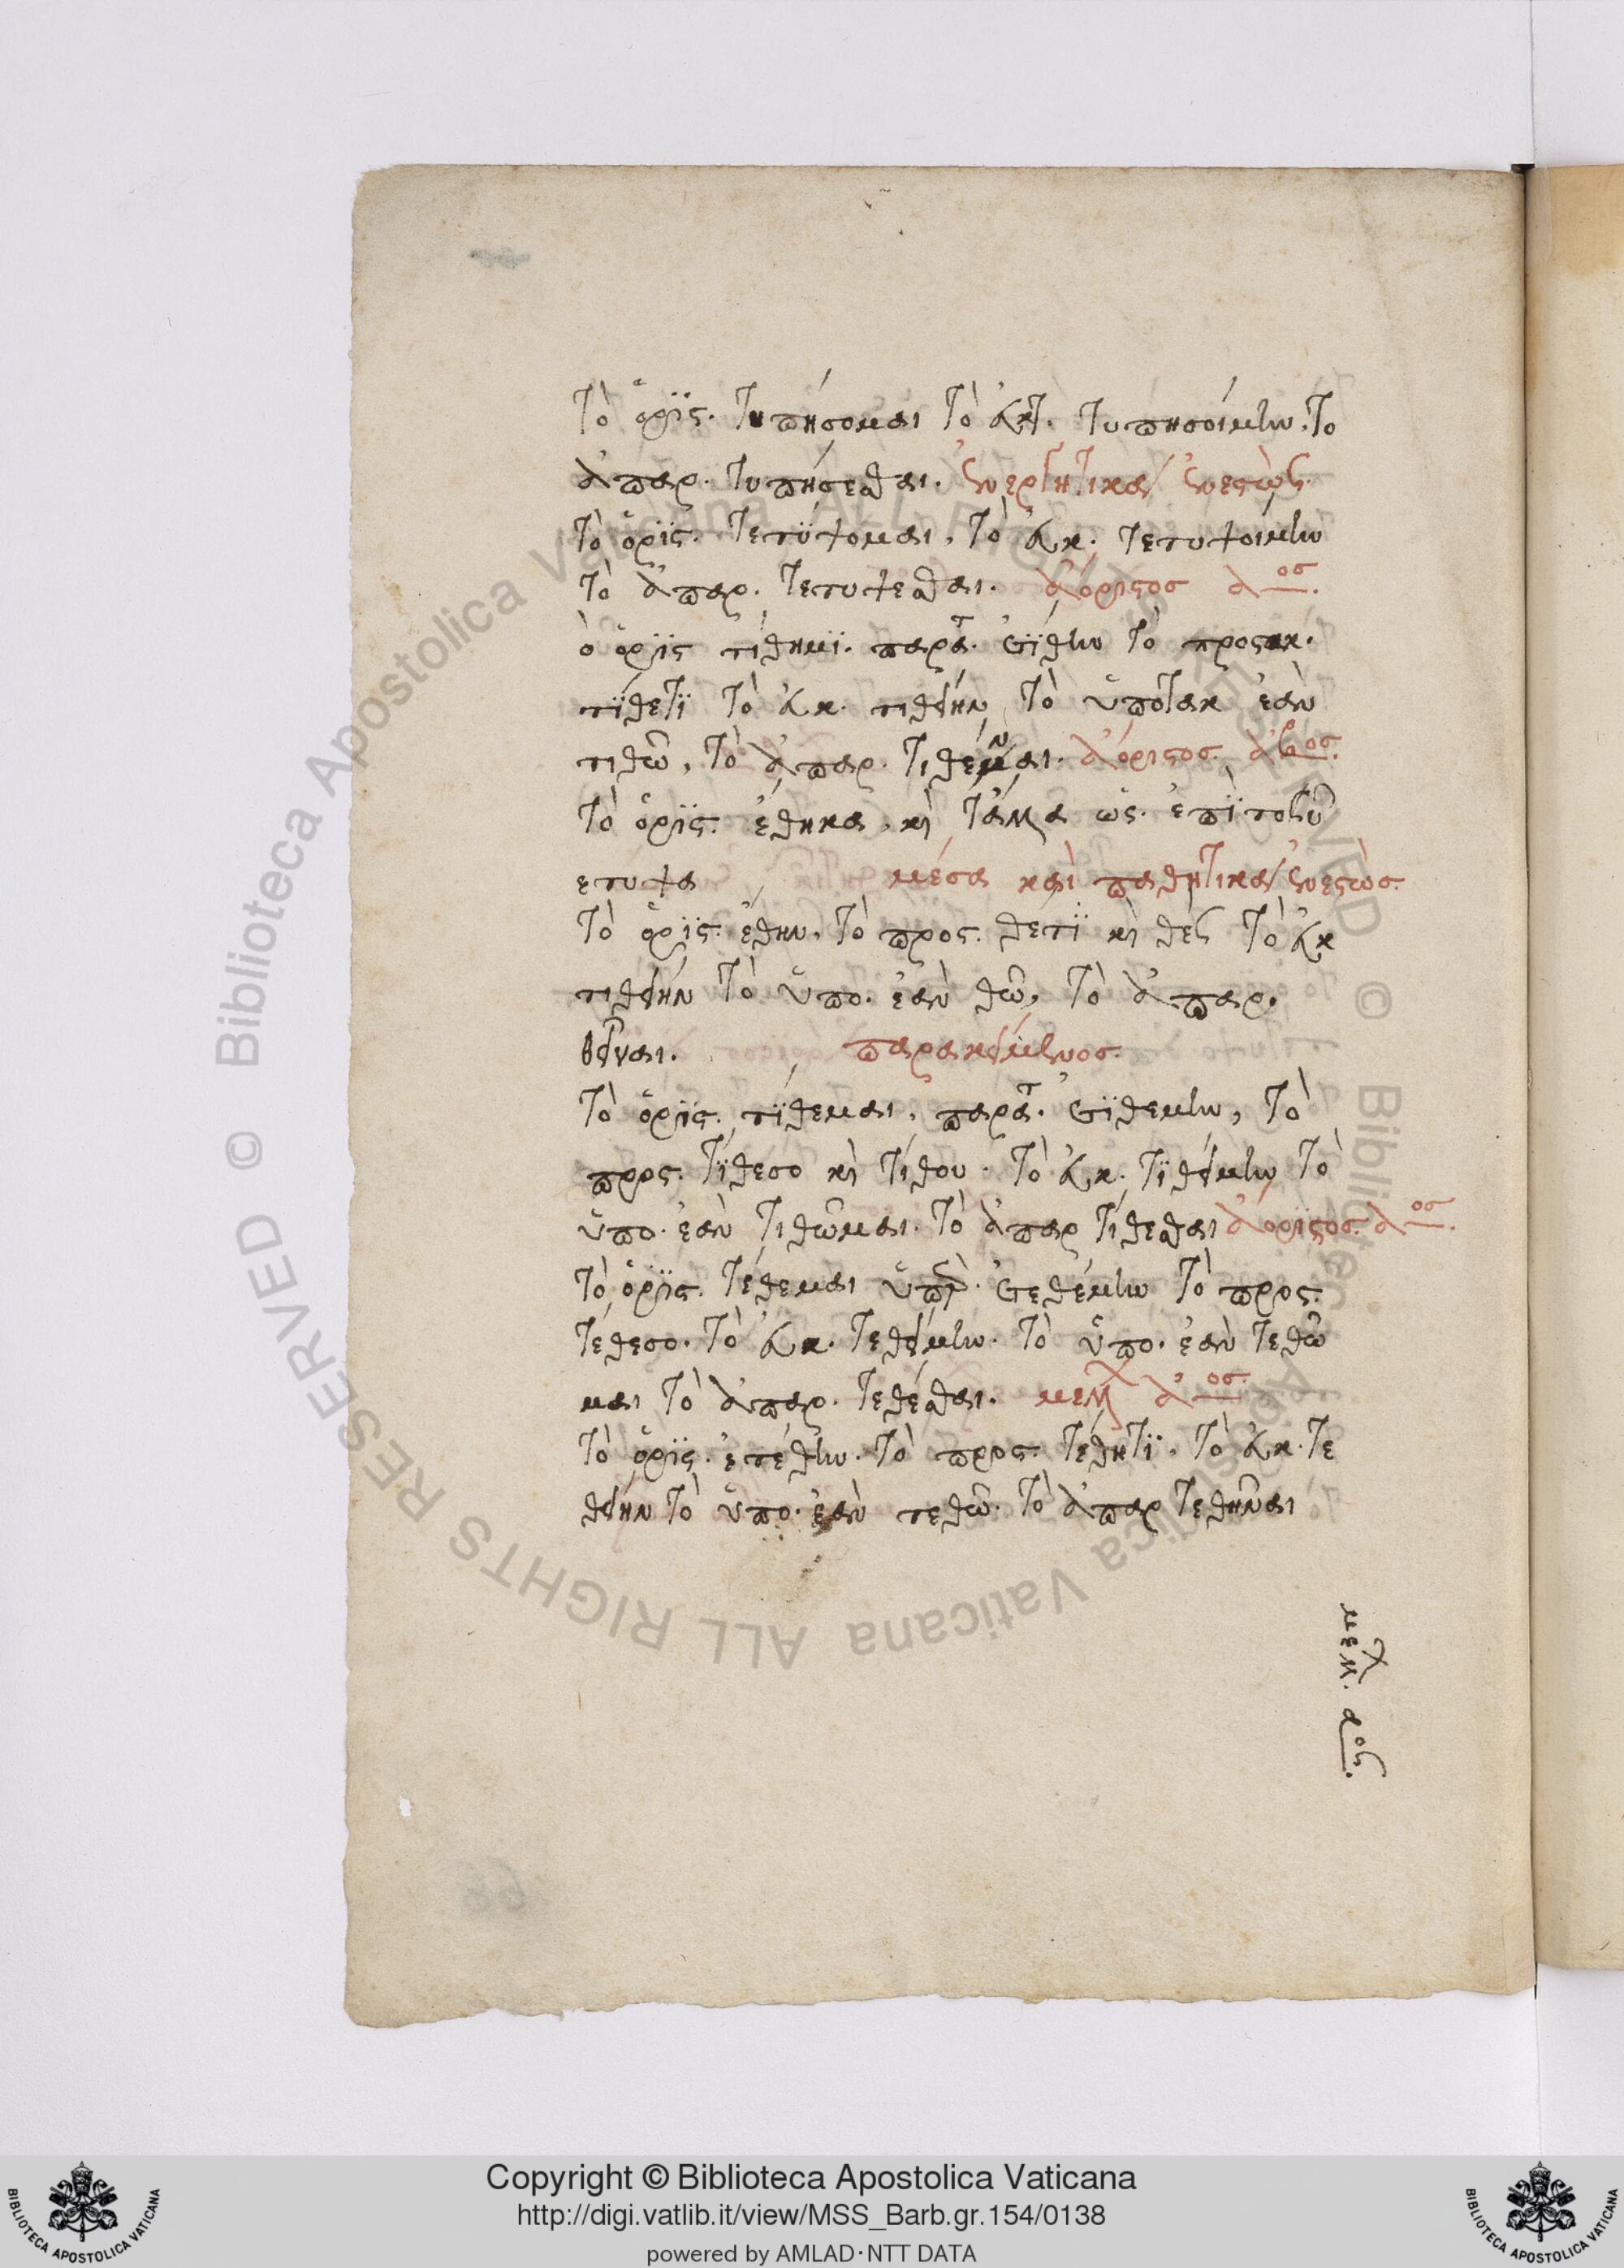 Τὸ ὁρϊς. Τυπήσομαι Τὸ ἐκτ. Τυπησοίμην. Το
ἀπαρ. τυπήσεσθαι. ἐνεργητικὰ ἐνεστὼς
Τὸ ὁρϊς. τετϋψομαι, τὸ ἐκ. τετυψοίμην
τὸ ἀπαρ. τετυψεσθαι. ἀόριστος αος.
ὁ ὁρϊς τίθημϊ. παρατ. ἐτϊθην τὸ προσακ.
τΐθετϊ τὸ ἐκ. τιθείην τὸ ὑπότακ ἐὰν
τιθῶ, τὸ ἀπαρ. τιθέναι. ἀόριστος. βος.
Τὸ ὁρϊς. έθηκα. κὶ τἄλλα ὡς. ἐπϊ τοῦ
ετυψα μέσα καὶ παθητικὰ ἐνεστὼς.
Τὸ ὁρϊς. ἔθην. τὸ προς. θετϊ κὶ θὲς Τὸ ἐκ
τιθείην τὸ ὑπο. ἐὰν θῶ, τὸ ἀπαρ.
θεῖναι. παρακείμενος.
Τὸ ὁρϊς. τϊθεμαι, παρατ. ἐτϊθεμην, τὸ
προς. τΐθεσο κὶ τίθου. τὸ ἐκ. τϊθείμην τὸ
ὑπο. ἐὰν τιθῶμαι. τὸ ἀπαρ τίθεσθαι ἀόριστος αος.
Τὸ ὁρϊς. τέθεμαι ὑπερ. ἐτεθέμην τὸ προς.
τέθεσο. τὸ ἐκ. τεθείμην. τὸ ὑπο. ἐὰν τεθῶ
μαι τὸ ἀπαρ. τεθέσθαι. μελλ αος.
Τὸ ὁρϊς. ἐτέθην. τὸ προς. τέθητϊ. τὸ ἐκ. τε
θείην τὸ ὑπο. ἐὰν τεθῶ. τὸ ἀπαρ τεθῆναι
μελλ. αος.
Copyright © Biblioteca Apostolica Vaticana
http://digi.vatlib.it/view/MSS_Barb.gr.154/0138
powered by AMLAD·NTT DATA
BIBLIOTECA APOSTOLICA VATICANA
BIBLIOTECA APOSTOLICA VATICANA
© Biblioteca Apostolica Vaticana ALL RIGHTS RESERVED © Biblioteca Apostolica Vaticana ALL RIGHTS RESERVED